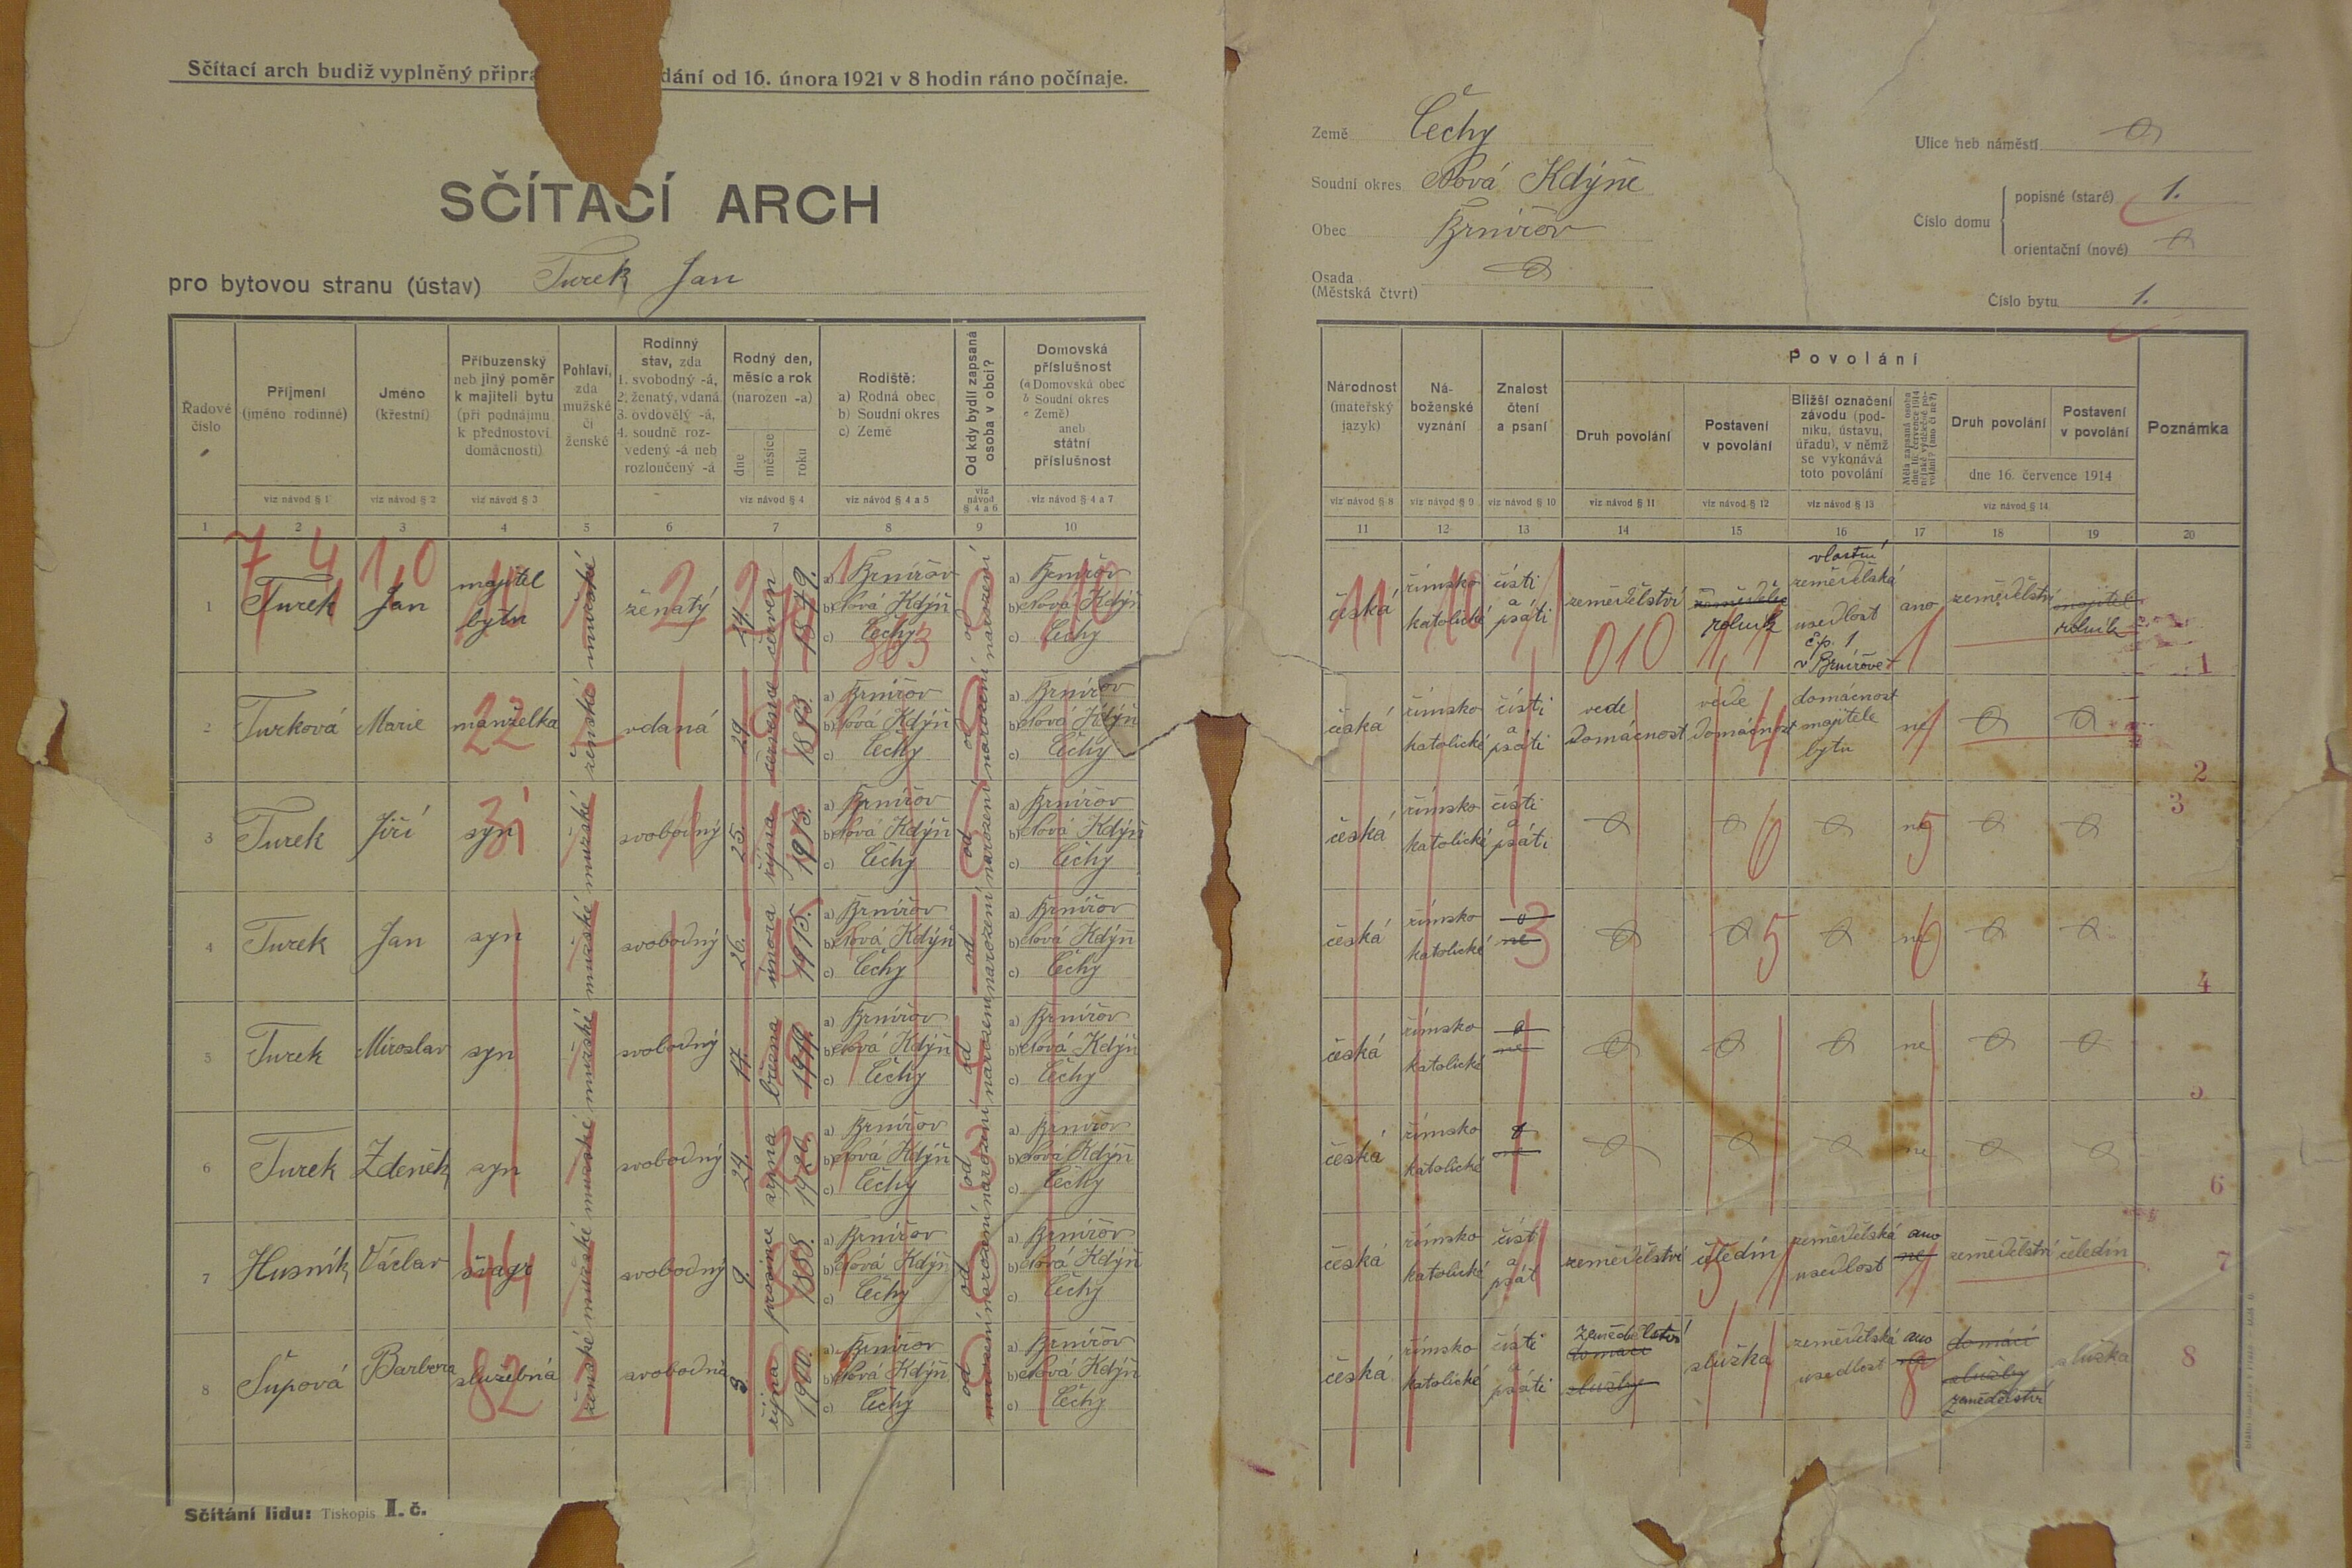 Sčítací arch budiž vyplněný připra dání od 16. února 1921 v 8 hodin ráno počínaje.
SČÍTACÍ ARCH
pro bytovou stranu (ústav) Turek Jan
Země Čechy
Soudní okres Nová Kdýně
Obec Brnířov
Osada
(Městská čtvrť)
Ulice neb náměstí
Číslo domu
popisné (staré) 1.
orientační (nové)
Číslo bytu 1.
Řadové číslo
Příjmení (jméno rodinné)
Jméno (křestní)
Příbuzenský neb jiný poměr k majiteli bytu (při podnájmu k přednostovi domácnosti)
Pohlaví, zda mužské či ženské
Rodinný stav, zda 1. svobodný -á, 2. ženatý, vdaná 3. ovdovělý -á, 4. soudně rozvedený -á neb rozloučený -á
Rodný den, měsíc a rok (narozen -a)
dne měsíce roku
Rodiště: a) Rodná obec b) Soudní okres c) Země
Od kdy bydlí zapsaná osoba v obci?
Domovská příslušnost (a Domovská obec b Soudní okres c Země) aneb státní příslušnost
viz návod § 1 viz návod § 2 viz návod § 3 viz návod § 4 viz návod § 4 a 5 viz návod § 4 a 6 viz návod § 4 a 7
1 2 3 4 5 6 7 8 9 10
Národnost (mateřský jazyk)
Náboženské vyznání
Znalost čtení a psaní
Povolání
Druh povolání
Postavení v povolání
Bližší označení závodu (podniku, ústavu, úřadu), v němž se vykonává toto povolání
Měla zapsaná osoba dne 16. července 1914 nějaké výdělečné povolání? (ano či ne?)
Druh povolání
Postavení v povolání
dne 16. července 1914
Poznámka
viz návod § 8 viz návod § 9 viz návod § 10 viz návod § 11 viz návod § 12 viz návod § 13 viz návod § 14
11 12 13 14 15 16 17 18 19 20
1 Turek Jan majitel bytu mužské ženatý 24. červen 1879. a) Brnířov b) Nová Kdýň c) Čechy od narození a) Brnířov b) Nová Kdýň c) Čechy
česká římsko katolické čísti a psáti zemědělství zemědělec rolník vlastní zemědělská usedlost č.p. 1 v Brnířově ano zemědělství majitel rolník 1
2 Turková Marie manželka ženské vdaná 29. července 1893. a) Brnířov b) Nová Kdýň c) Čechy od narození a) Brnířov b) Nová Kdýň c) Čechy
česká římsko katolické čísti a psáti vede domácnost vede domácnost domácnost majitele bytu ne 2
3 Turek Jiří syn mužské svobodný 25. října 1913. a) Brnířov b) Nová Kdýň c) Čechy od narození a) Brnířov b) Nová Kdýň c) Čechy
česká římsko katolické čísti a psáti ne 3
4 Turek Jan syn mužské svobodný 26. února 1915. a) Brnířov b) Nová Kdýň c) Čechy od narození a) Brnířov b) Nová Kdýň c) Čechy
česká římsko katolické ne ne 4
5 Turek Miroslav syn mužské svobodný 17. března a) Brnířov b) Nová Kdýň c) Čechy od narození a) Brnířov b) Nová Kdýň c) Čechy
česká římsko katolické ne ne 5
6 Turek Zdeněk syn mužské svobodný 24. srpna a) Brnířov b) Nová Kdýň c) Čechy od narození a) Brnířov b) Nová Kdýň c) Čechy
česká římsko katolické ne ne 6
7 Husník Václav švagr mužské svobodný 9. prosince 1888. a) Brnířov b) Nová Kdýň c) Čechy od narození a) Brnířov b) Nová Kdýň c) Čechy
česká římsko katolické číst a psát zemědělství čeledín zemědělská usedlost ano ne zemědělství čeledín 7
8 Ťupová Barbora služebná ženské svobodná 3. října 1900. a) Brnířov b) Nová Kdýň c) Čechy od narození a) Brnířov b) Nová Kdýň c) Čechy
česká římsko katolické čísti a psáti zemědělství domácí služby služka zemědělská usedlost ano ne domácí služby zemědělství služka 8
Sčítání lidu: Tiskopis I. č.